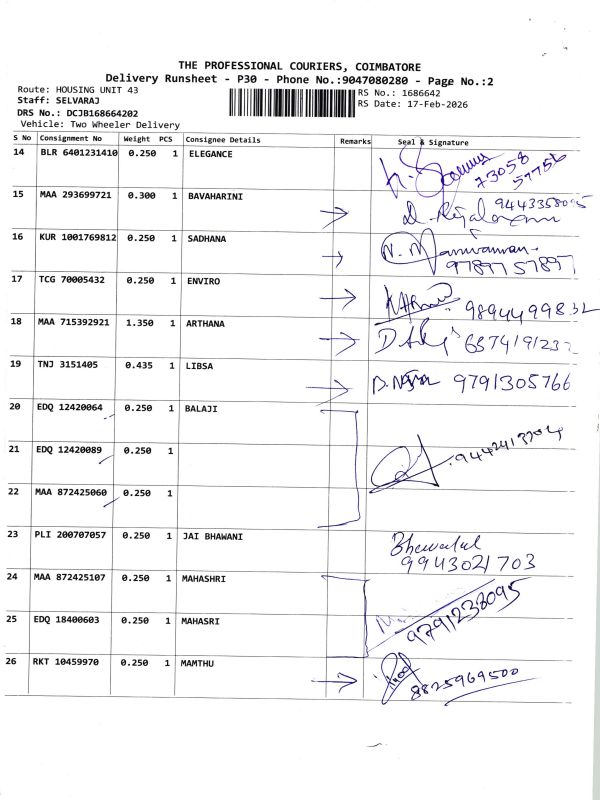 THE PROFESSIONAL COURIERS, COIMBATORE
Delivery Runsheet - P30 - Phone No.:9047080280 - Page No.:2
Route: HOUSING UNIT 43
RS No.: 1686642
Staff: SELVARAJ
RS Date: 17-Feb-2026
DRS No.: DCJB168664202
Vehicle: Two Wheeler Delivery
S No Consignment No Weight PCS Consignee Details Remarks Seal & Signature
14 BLR 6401231410 0.250 1 ELEGANCE
73058
57756
15 MAA 293699721 0.300 1 BAVAHARINI 9443358095
16 KUR 1001769812 0.250 1 SADHANA
9789757897
17 TCG 70005432 0.250 1 ENVIRO 9894499832
18 MAA 715392921 1.350 1 ARTHANA
19 TNJ 3151405 0.435 1 LIBSA 9791305766
20 EDQ 12420064 0.250 1 BALAJI
21 EDQ 12420089 0.250 1
22 MAA 872425060 0.250 1
23 PLI 200707057 0.250 1 JAI BHAWANI
9943021703
24 MAA 872425107 0.250 1 MAHASHRI
9791238095
25 EDQ 18400603 0.250 1 MAHASRI
26 RKT 10459970 0.250 1 MAMTHU
8825969500